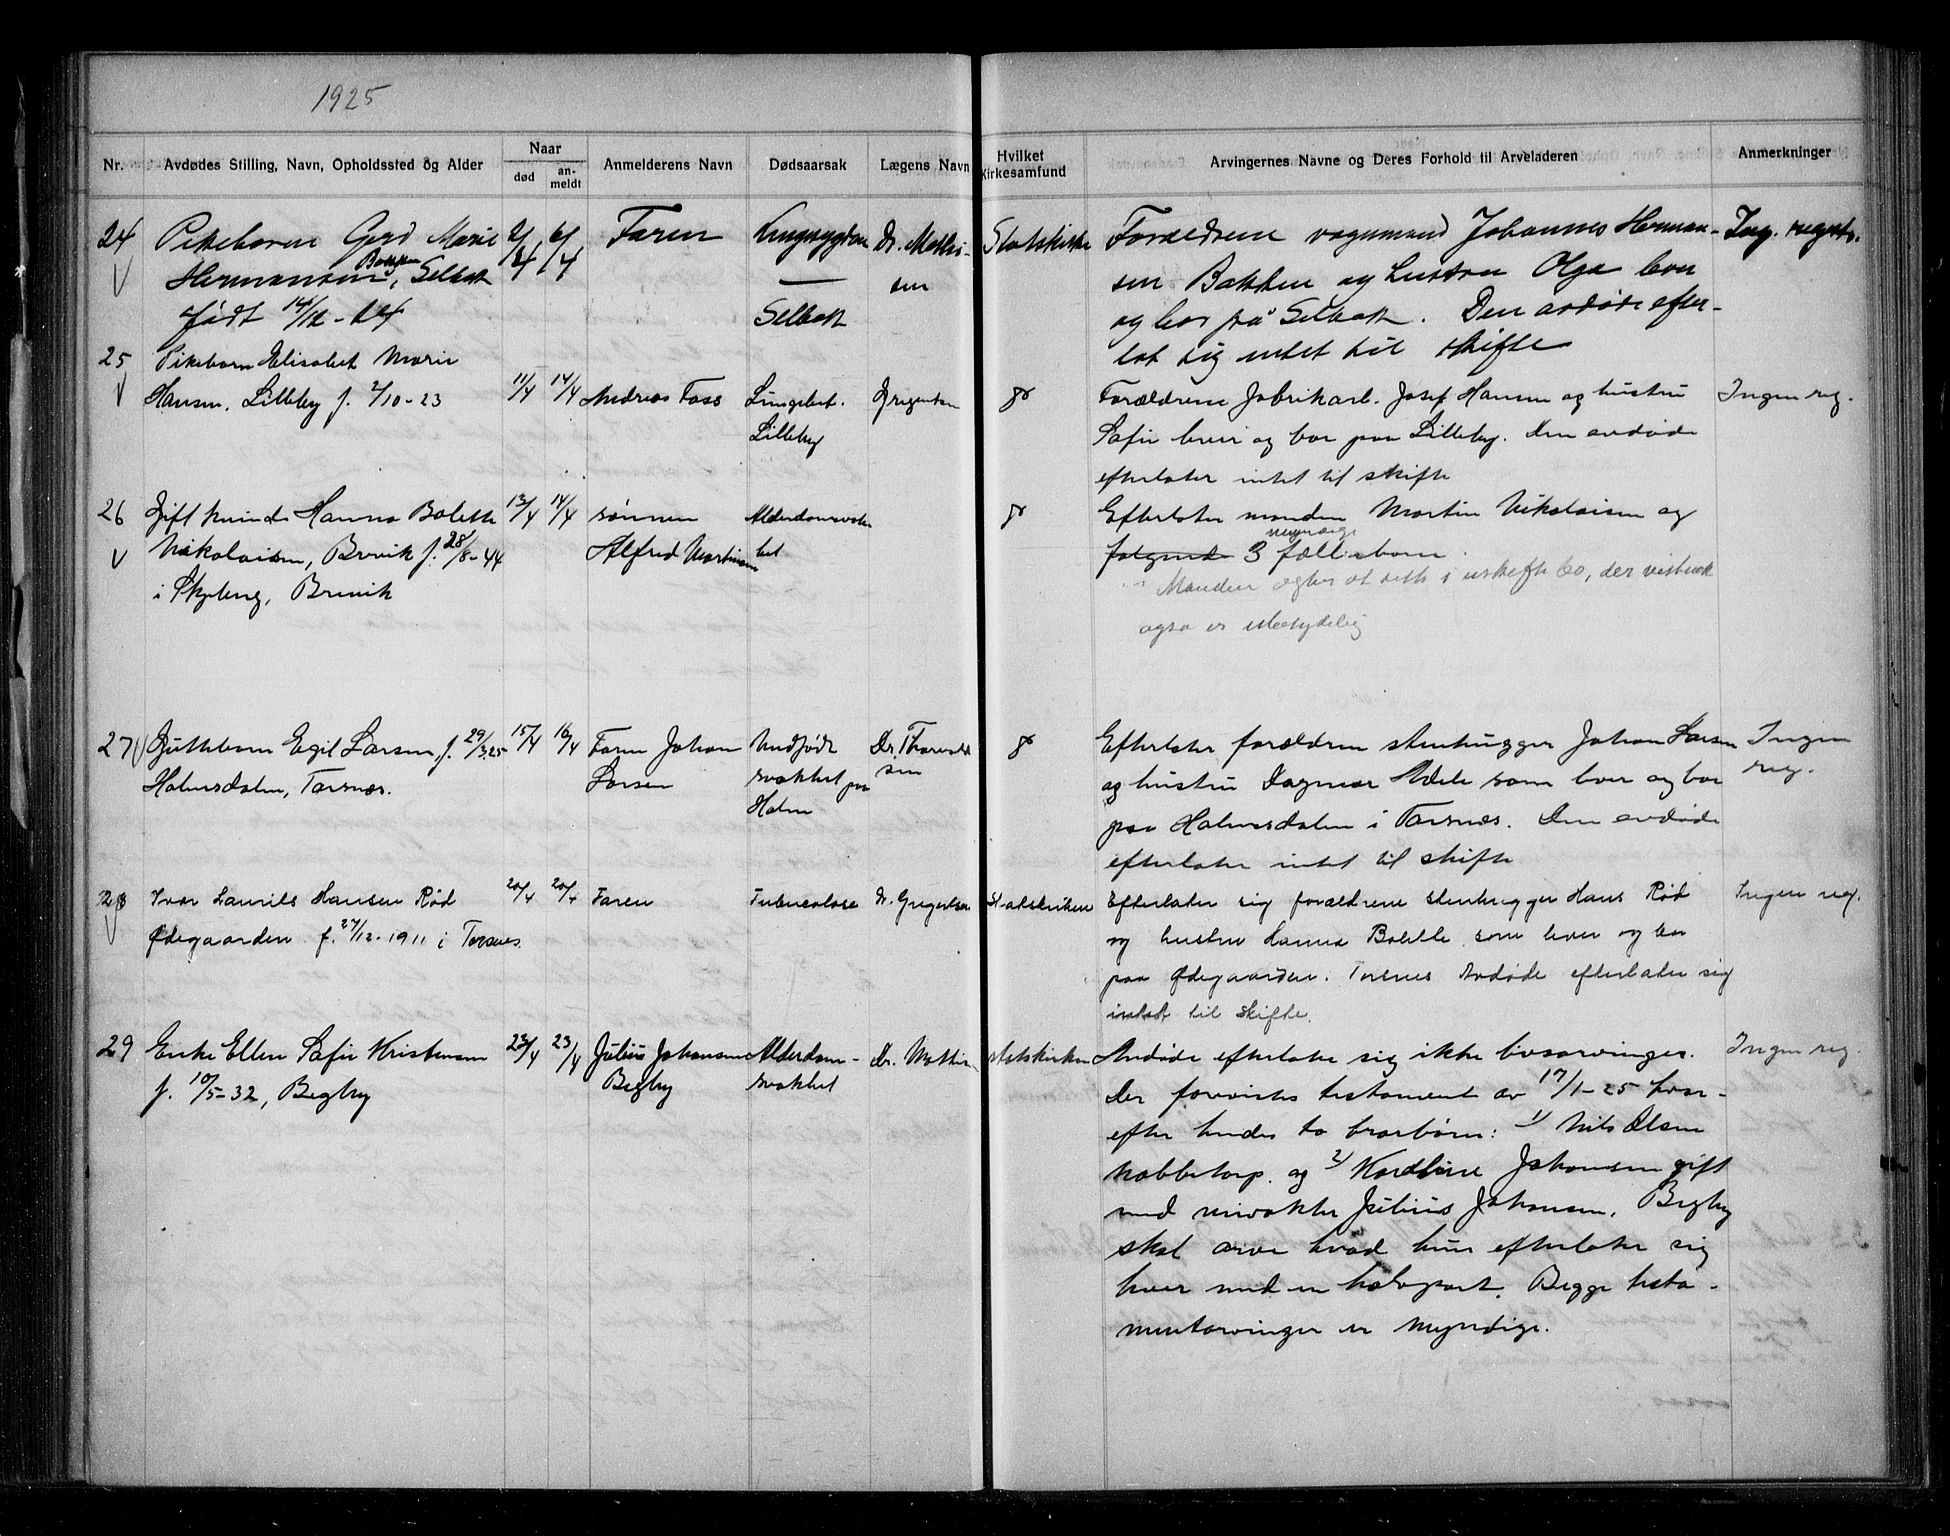 1925
Nr. Avdødes Stilling, Navn, Opholdssted og Alder Naar død an-meldt Anmelderens Navn Dødsaarsak Lægens Navn Hvilket Kirkesamfund Arvingernes Navne og Deres Forhold til Arveladeren Anmerkninger
24 Pikebarnet Gerd Marie 2/4 6/4 Faren Dr. Mathi- Statskirke Forældrene vognmand Johannes Herman- Ing. registr.
Hermansen Bakken, Selbak sen sen Bakken og hustru Olga lever
født 14/12-24 Selbak og bor på Selbak. Den avdøde efter-
25 Pikebarn Elisabet Marie lot sig intet til skifte
Hansen, Lilleby f. 2/10-23 11/4 14/4 Andreas Foss Lungebet. Gregertsen Forældrene fabrikarb. Josef Hansen og hustru Ingen reg.
Lilleby Sofie lever og bor paa Lilleby. Den avdøde
efterlater intet til skifte
26 Gift kvinde Hanna Bolette 13/4 14/4 sønnen Efterlater manden Martin Nikolaisen og
Nikolaisen, Brevik f. 28/8-44 Alfred Martinsen het følgende 3 myndige fællesbarn.
i Skjeberg, Brevik Manden agter at sitte i uskiftet bo, der vistnok
ogsa er ubetydelig
27 Guttebarn Egil Larsen f. 29/3.25 15/4 16/4 Faren Johan Medfødt Dr. Thorvald Efterlater forældrene stenhugger Johan Larsen Ingen
Holmsdalen, Torsnes. Larsen svakhet paa sen og hustru Dagmar Adele som lever og bor reg.
Holm paa Holmsdalen i Torsnes. Den avdøde
efterlater intet til skifte
28 Ivar Laurits Hansen Rød 20/4 20/4 Faren Tuberculose Dr. Gregertsen Statskirken Efterlater sig forældrene stenhugger Hans Rød Ingen reg.
Ødegaarden f. 27/12-1911 i Torsnes og hustru Hanna Bolette som lever og bor
paa Ødegaarden. Torsnes Avdøde efterlater sig
intet til skifte.
29 Enke Ellen Sofie Kristensen 23/4 23/4 Julius Johansen Alderdom- Dr. statskirken Avdøde efterlater sig ikke livsarvinger. Ingen reg.
f. 10/5-32, Begby Begby svakhet Der forevistes testament av 17/1-25 hvor-
efter hendes to brorbørn: 1/ Nils Olsen
Nabbetorp. og 2/ Karoline Johansen gift
med Julius Johansen, Begby
skal arve hvad hun efterlater sig
hver med en halvpart. Begge testa-
mentarvinger er myndige.